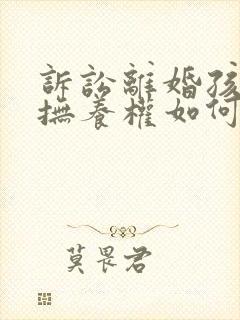 訴訟離婚孩
撫養權如何
莫畏君